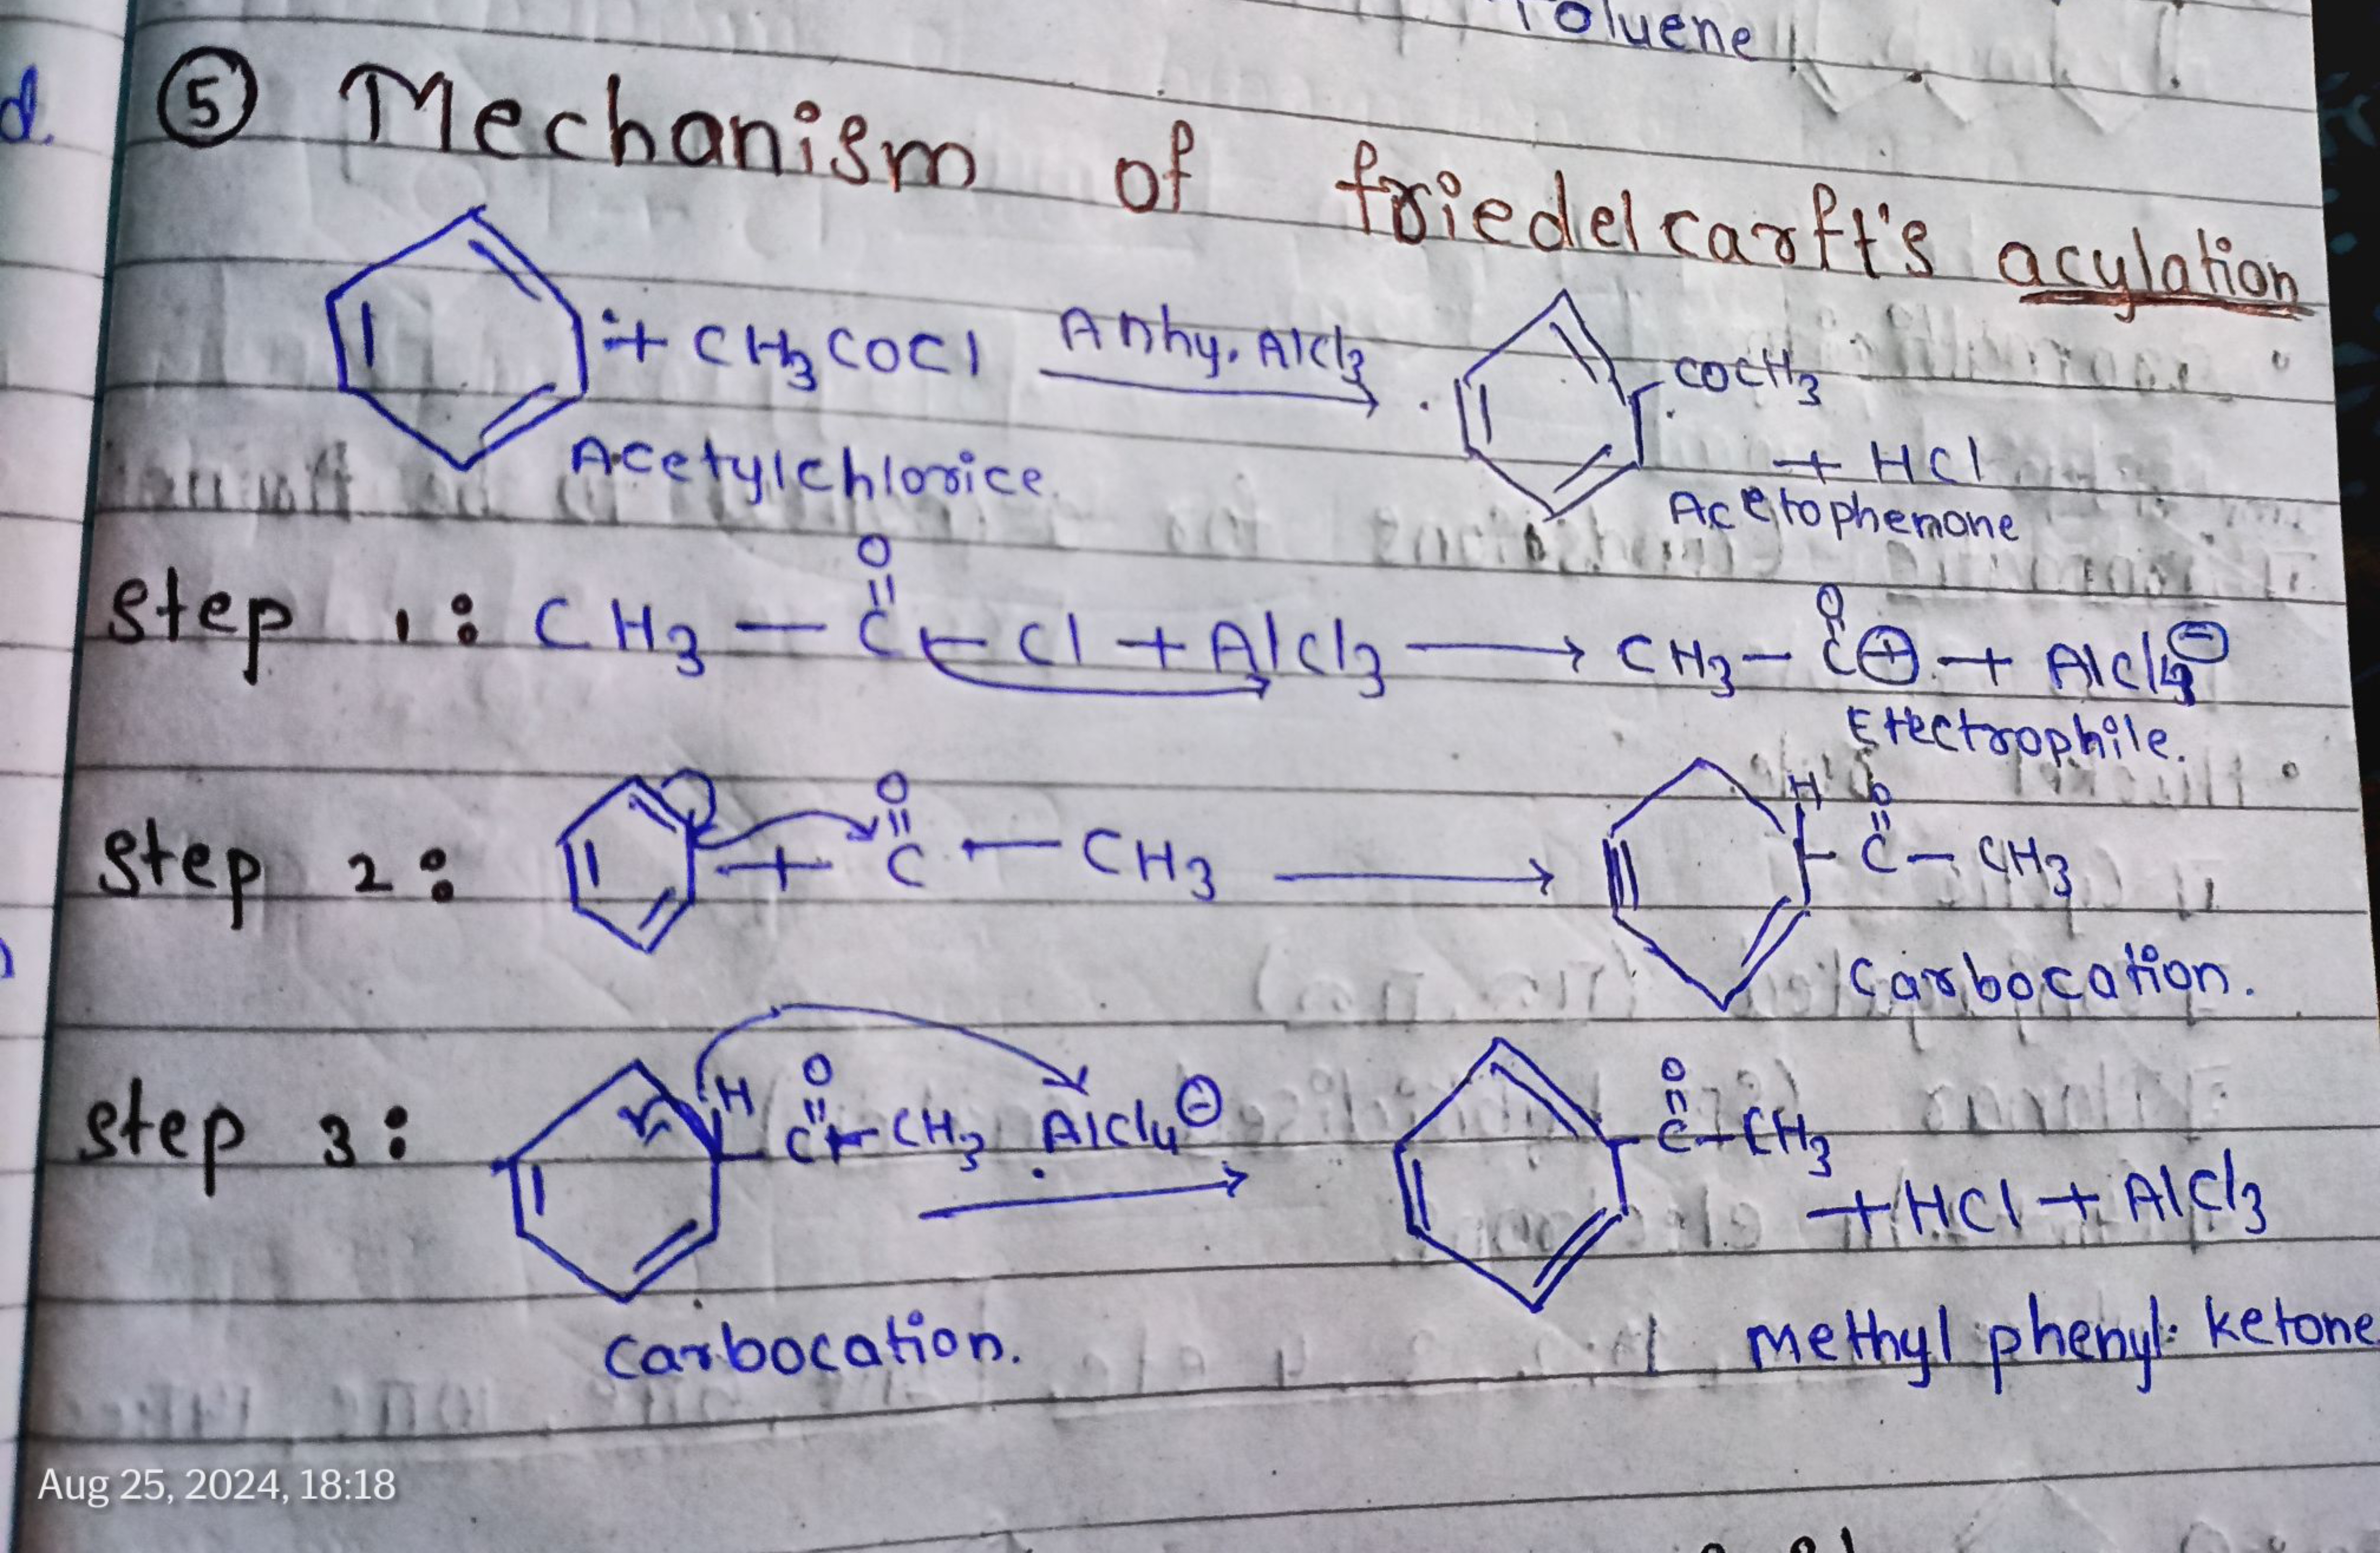 Toluene
d.
⑤ Mechanism of friedel carft's acylation
+ CH3COCl Anhy. AlCl3 COCH3
+ HCl
Acetylchlorice Acetophenone
Step 1: CH3 - C(=O) - Cl + AlCl3 → CH3 - C(=O)⊕ + AlCl4⊖
Electrophile.
Step 2: + C(=O) - CH3 → H C(=O) - CH3
Carbocation.
Step 3: H C(=O) - CH3 AlCl4⊖ → C(=O) - CH3
+ HCl + AlCl3
Carbocation. Methyl phenyl ketone
Aug 25, 2024, 18:18